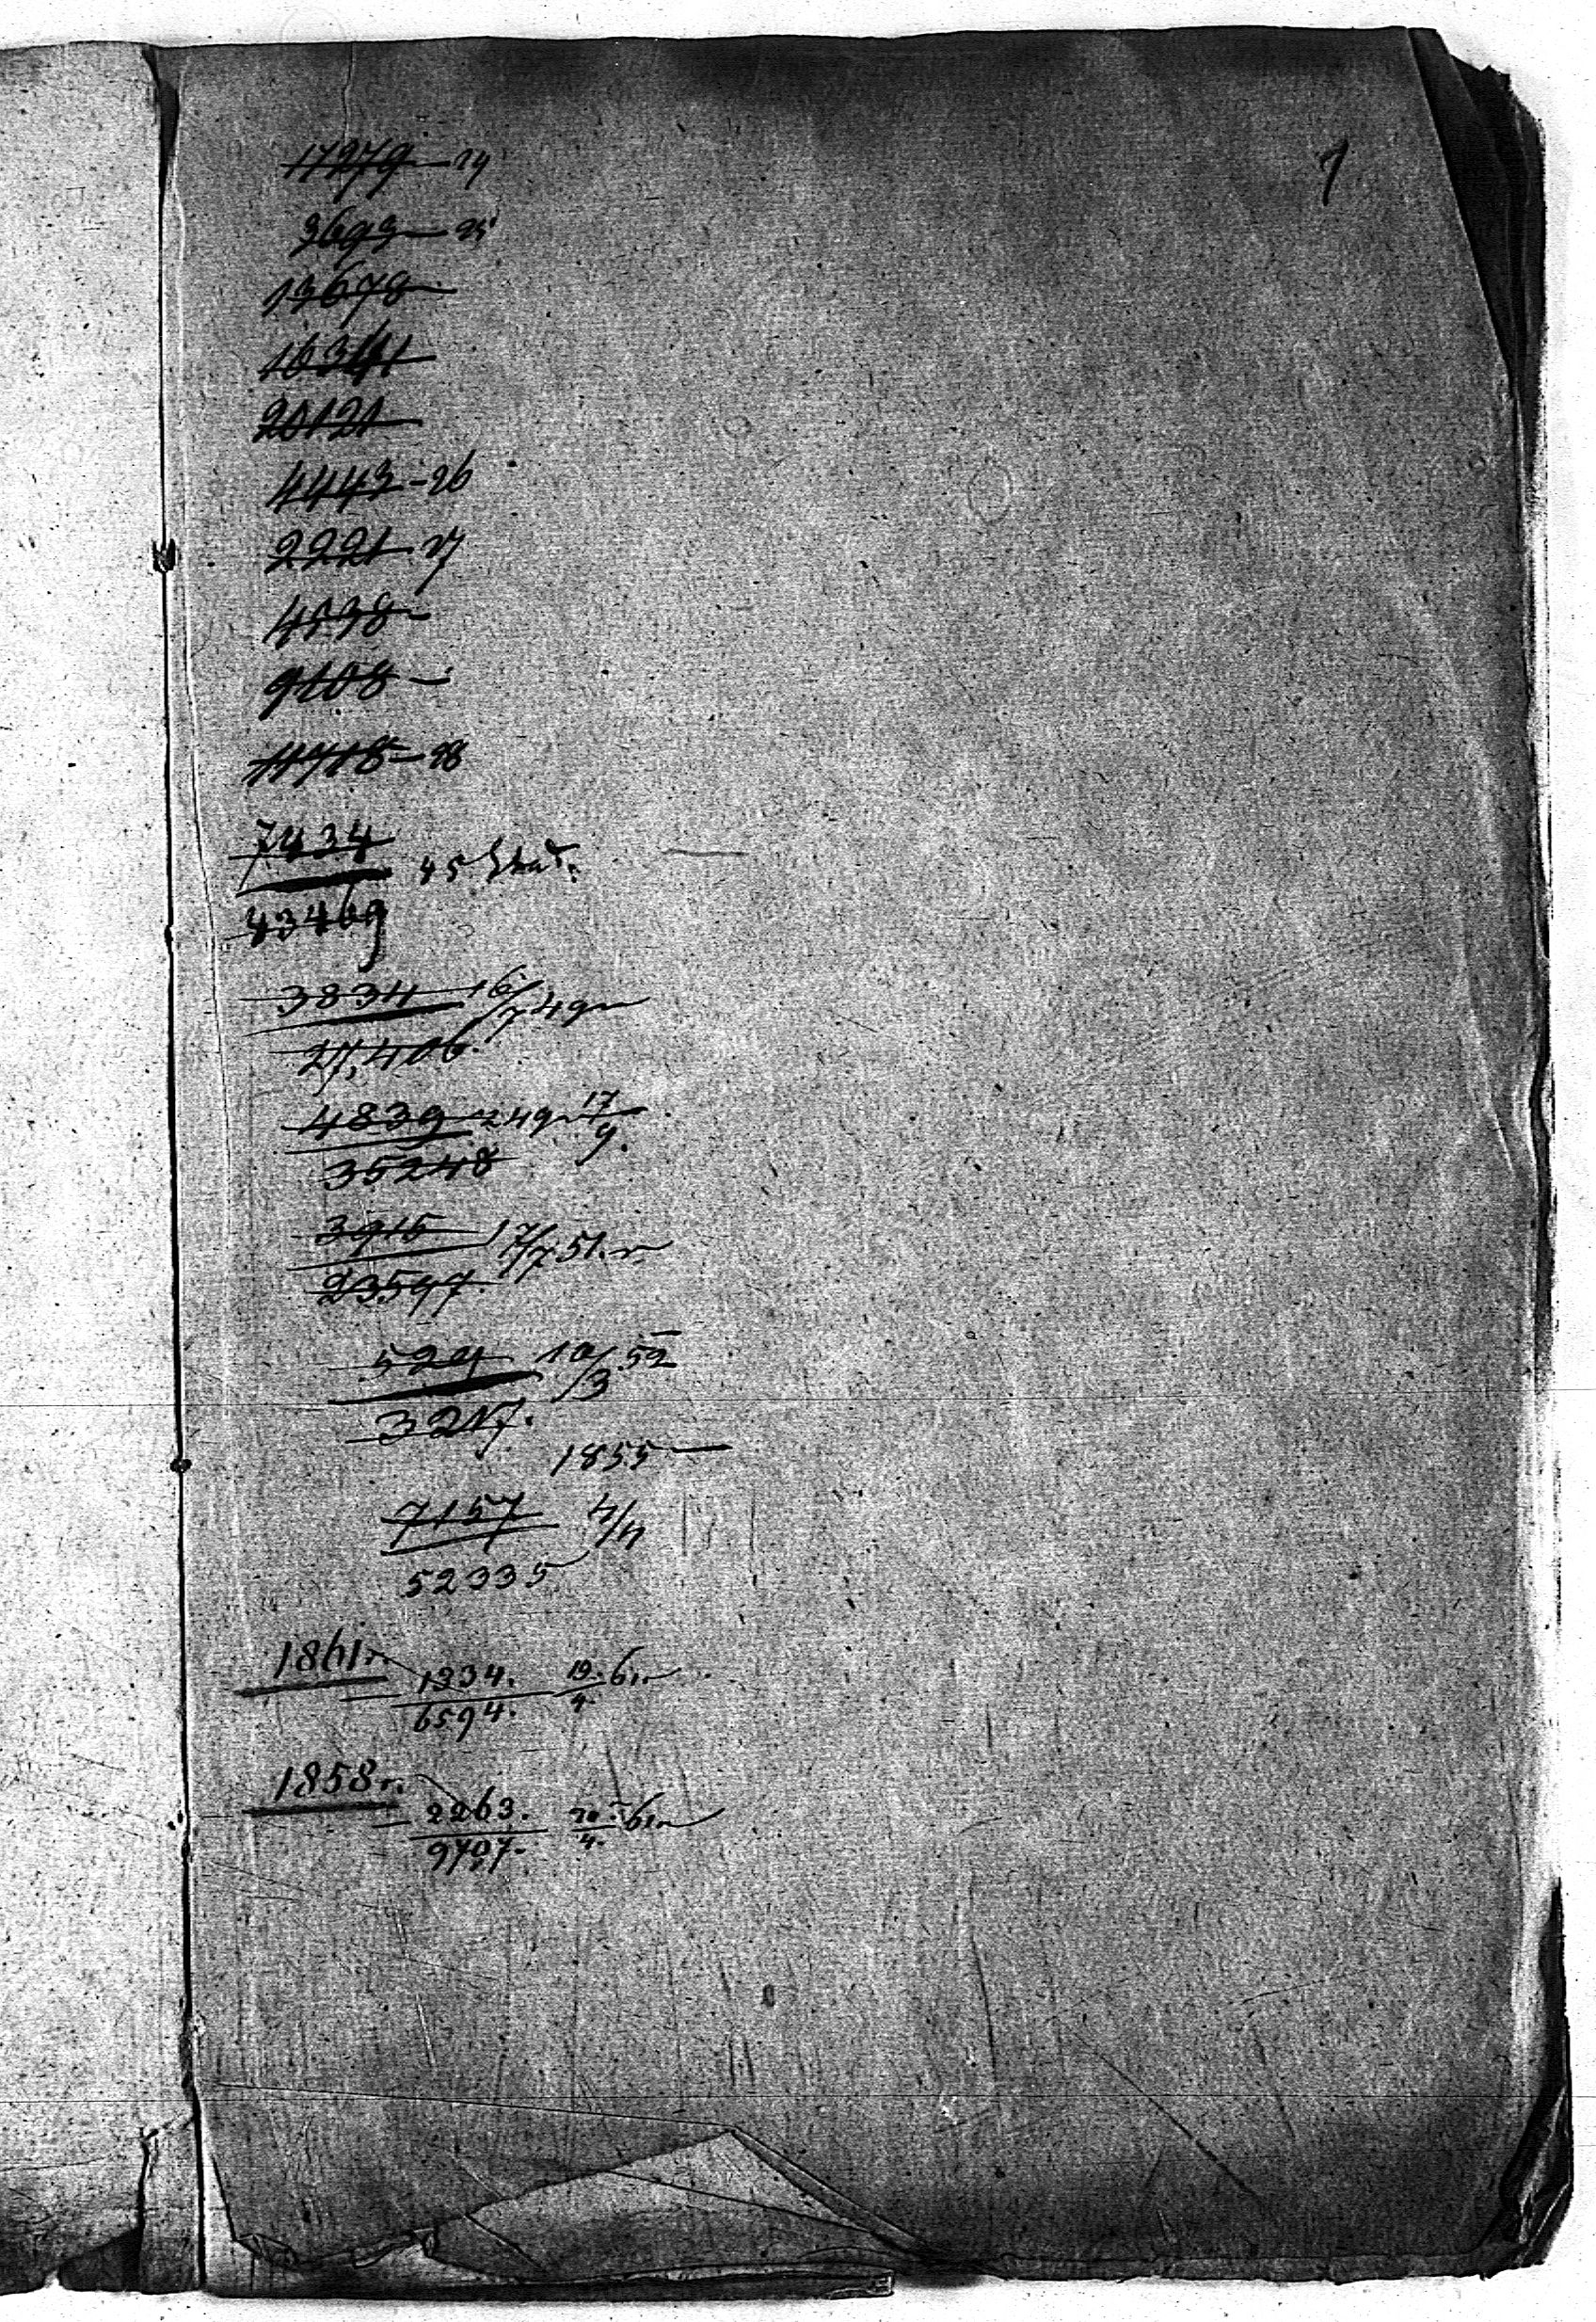 1
17279 — 24
3693 — 25
13679
16341
20121
4443 - 26
2221 - 27
4538
9108 —
11718 — 28
7434
45
43469
3834 16/7 49
27,406.
4839 49 17/9.
35248
3915 17/7 51.
23597.
524 10/3 52
3217.
1855 —
7157 4/4
52335
1861 г.
1234. 19./4. 61
6594.
1858 г.
2263. 20/4. 61
9707.